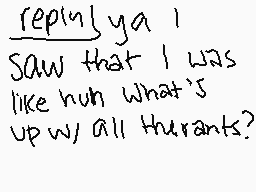 reply! ya i
saw that i was
like huh what's
up w/ all the rants?